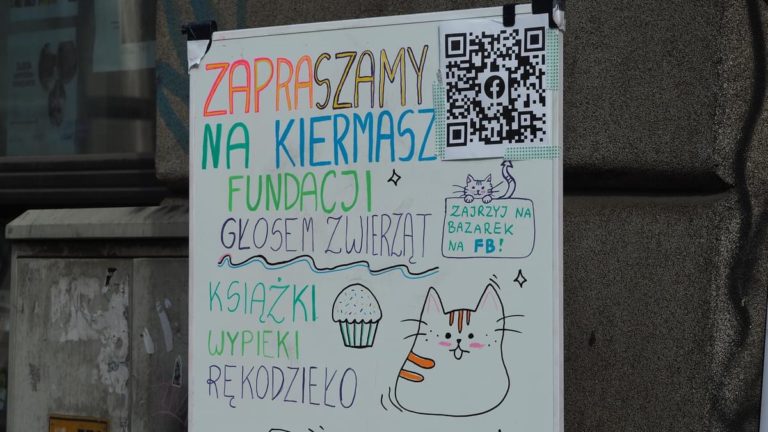 ZAPRASZAMY
NA KIERMASZ
FUNDACJI
GŁOSEM ZWIERZĄT
ZAJRZYJ NA
BAZAREK
NA FB!
KSIĄŻKI
WYPIEKI
RĘKODZIEŁO